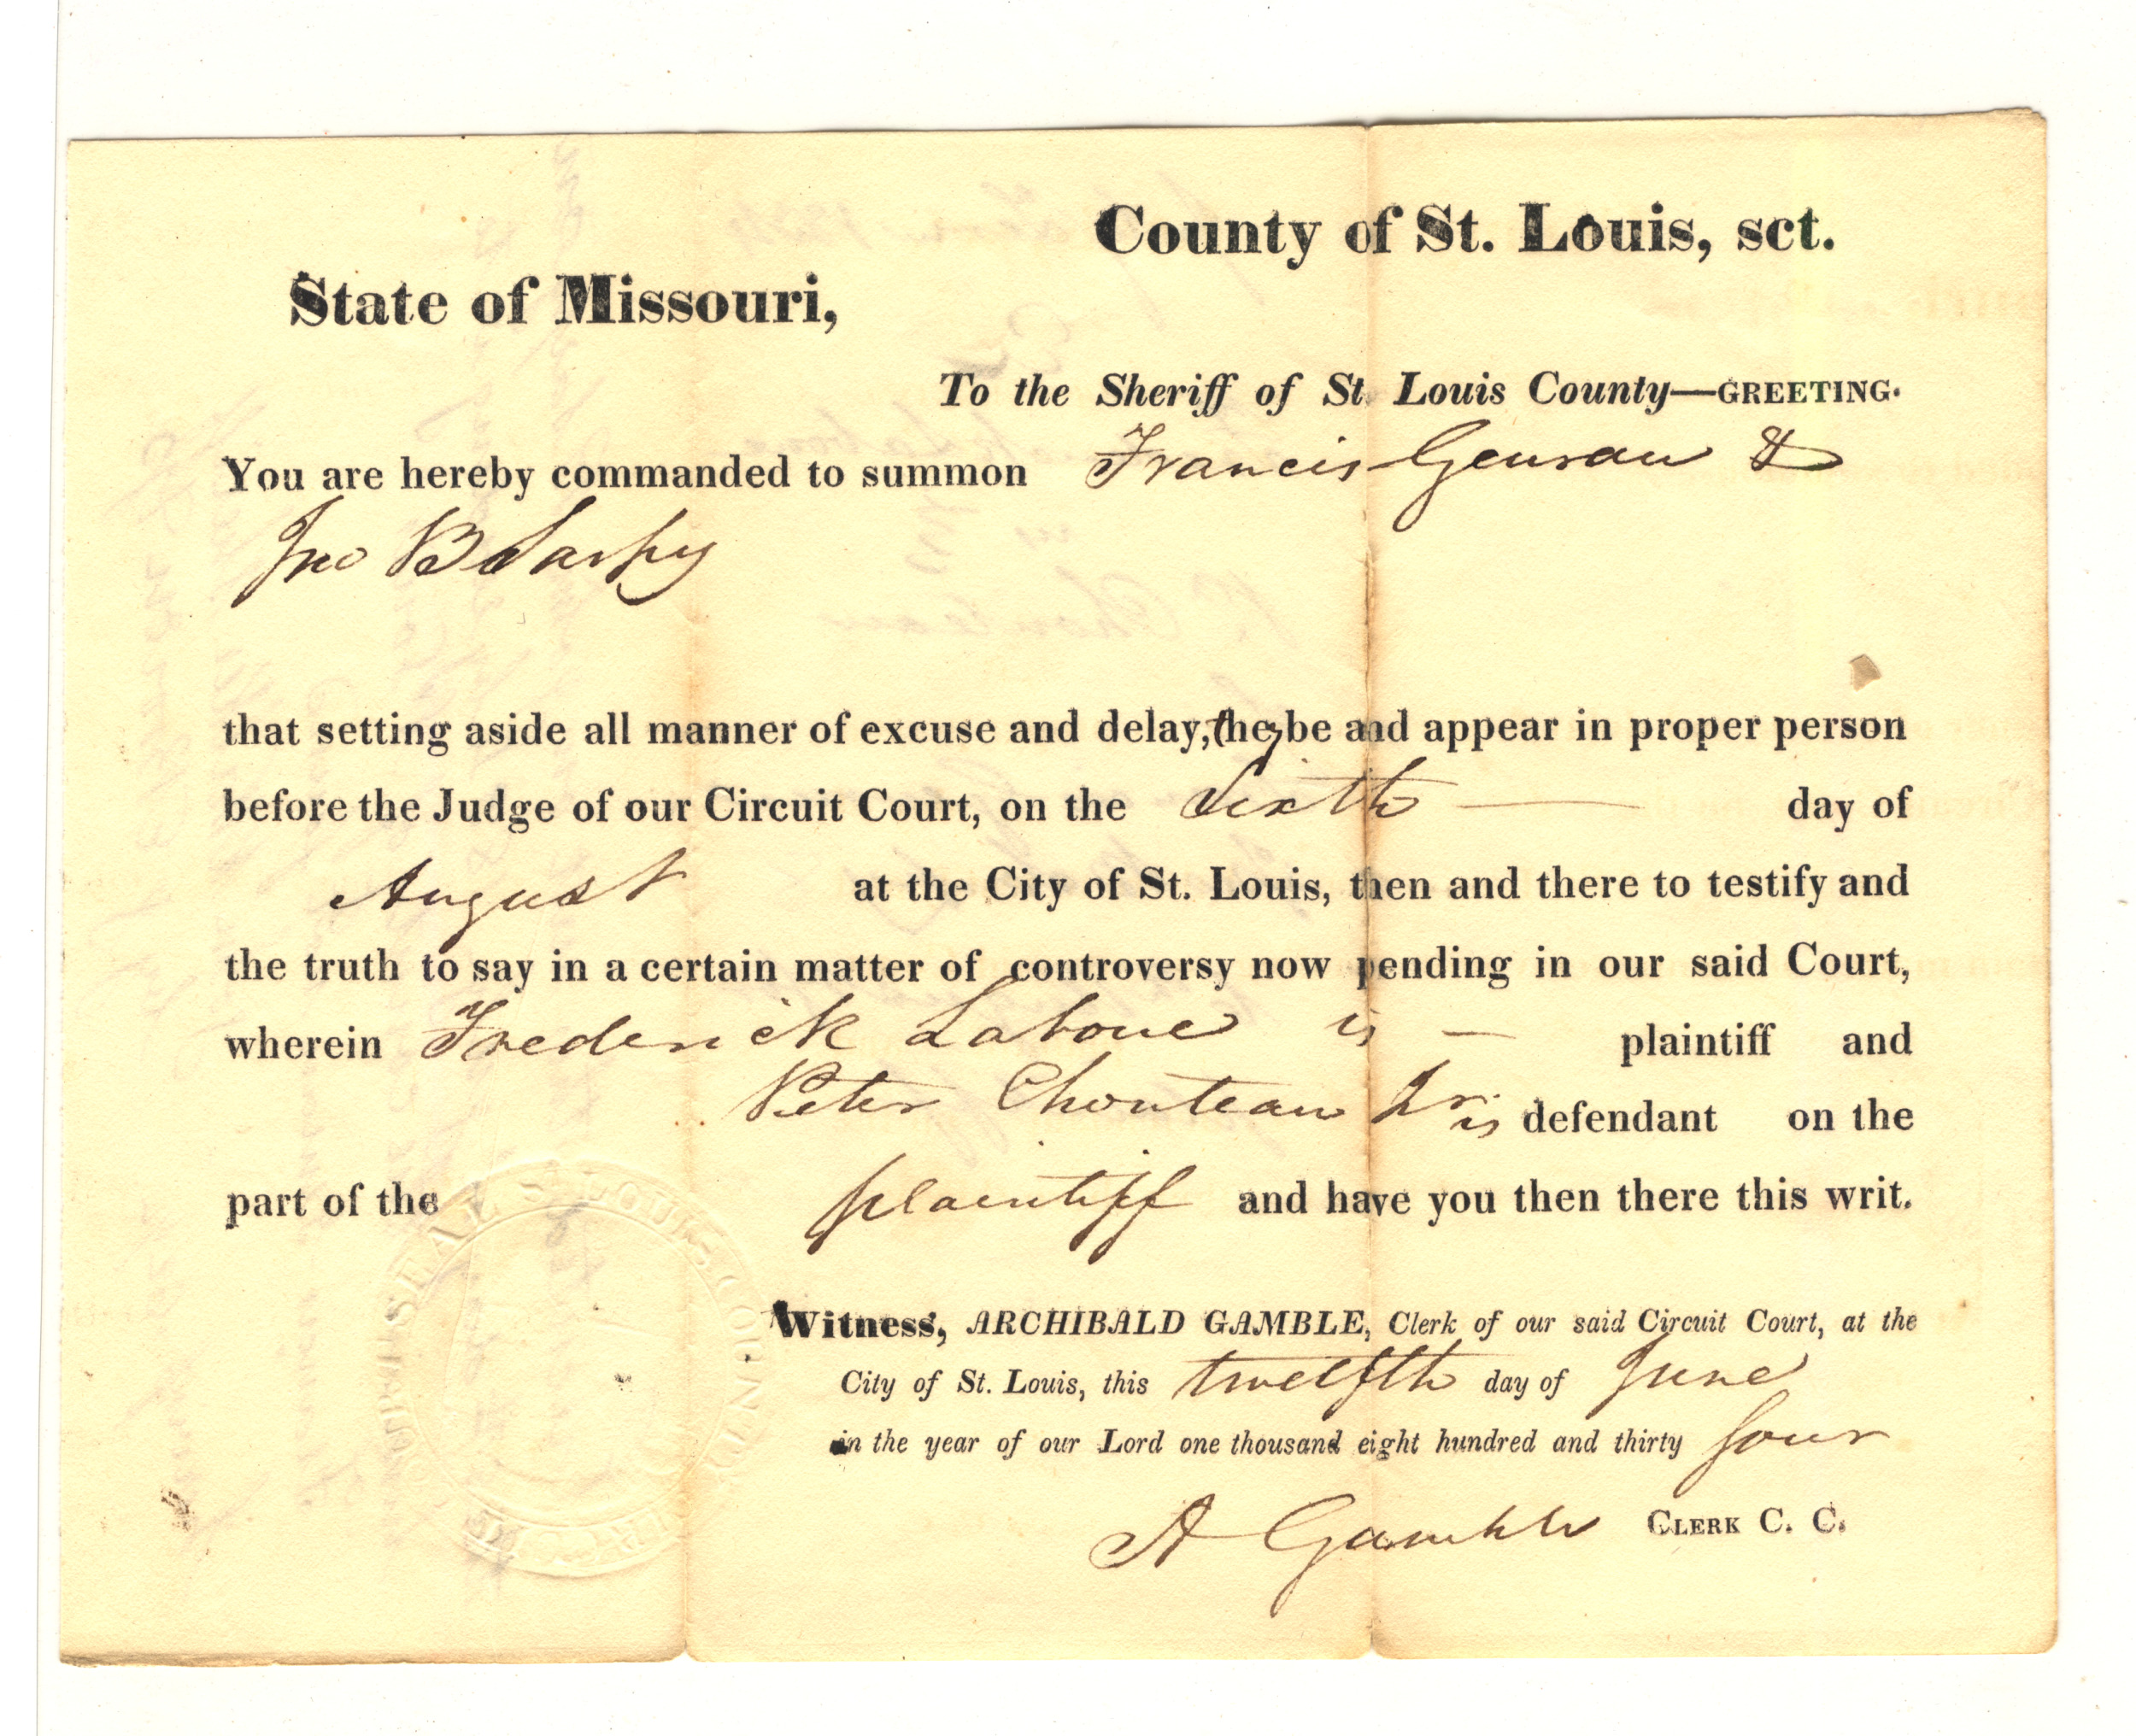 County of St. Louis, sct.
State of Missouri,
To the Sheriff of St. Louis County—GREETING.
You are hereby commanded to summon Francis Genrau &
Jno B Sarpy
that setting aside all manner of excuse and delay, they be and appear in proper person
before the Judge of our Circuit Court, on the Sixth — day of
August at the City of St. Louis, then and there to testify and
the truth to say in a certain matter of controversy now pending in our said Court,
wherein Frederick Laboue is — plaintiff and
Peter Chouteau Jr. is defendant on the
part of the plaintiff and have you then there this writ.
SEAL ST LOUIS COUNTY CIRCUIT COURT MISSOURI
Witness, ARCHIBALD GAMBLE, Clerk of our said Circuit Court, at the
City of St. Louis, this twelfth day of June
in the year of our Lord one thousand eight hundred and thirty four
A Gamble CLERK C. C.